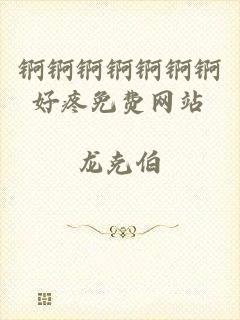 锕锕锕锕锕锕锕
好疼免费网站
龙克伯